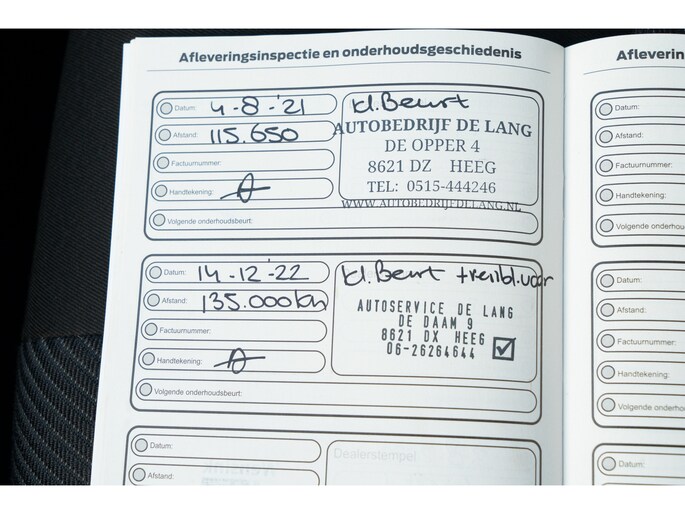 Afleveringsinspectie en onderhoudsgeschiedenis
Datum: 4-8-'21
Afstand: 115.650
Factuurnummer:
Handtekening:
Volgende onderhoudsbeurt:
kl. Beurt
AUTOBEDRIJF DE LANG
DE OPPER 4
8621 DZ HEEG
TEL: 0515-444246
WWW.AUTOBEDRIJFDELANG.NL
Datum: 14-12-'22
Afstand: 135.000km
Factuurnummer:
Handtekening:
Volgende onderhoudsbeurt:
kl. Beurt + rembl. voor
AUTOSERVICE DE LANG
DE DAAM 9
8621 DX HEEG
06-26264644
Datum:
Afstand:
Dealerstempel
Afleverin
Datum:
Afstand:
Factuurnummer:
Handtekening:
Volgende onderho
Datum:
Afstand:
Factuurnummer:
Handtekening:
Volgende onderho
Datum: